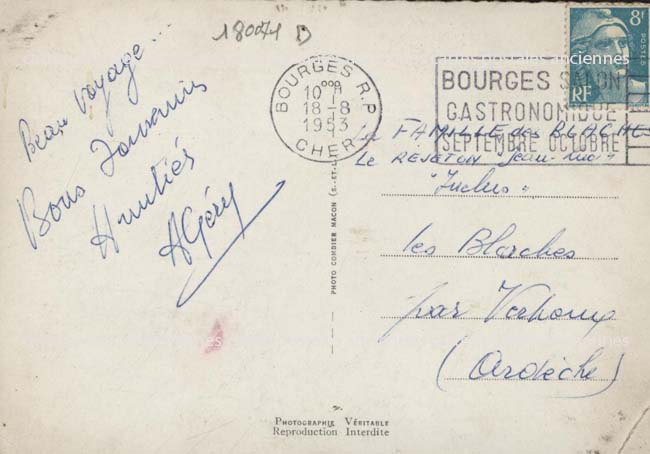 18004 D
Beau voyage...
Bons Souvenirs
Amitiés
BOURGES R.P.
10H
18-8
1953
CHER
BOURGES SALON
GASTRONOMIQUE
SEPTEMBRE OCTOBRE
8F
POSTES
RF
cartes postales anciennes
La FAMILLE des BLACHES
Le REJETON Jean-Luc
"Inclus"
les Blaches
par
(Ardèche)
PHOTO COMBIER MACON (S.-ET-L.)
PHOTOGRAPHIE VÉRITABLE
Reproduction Interdite